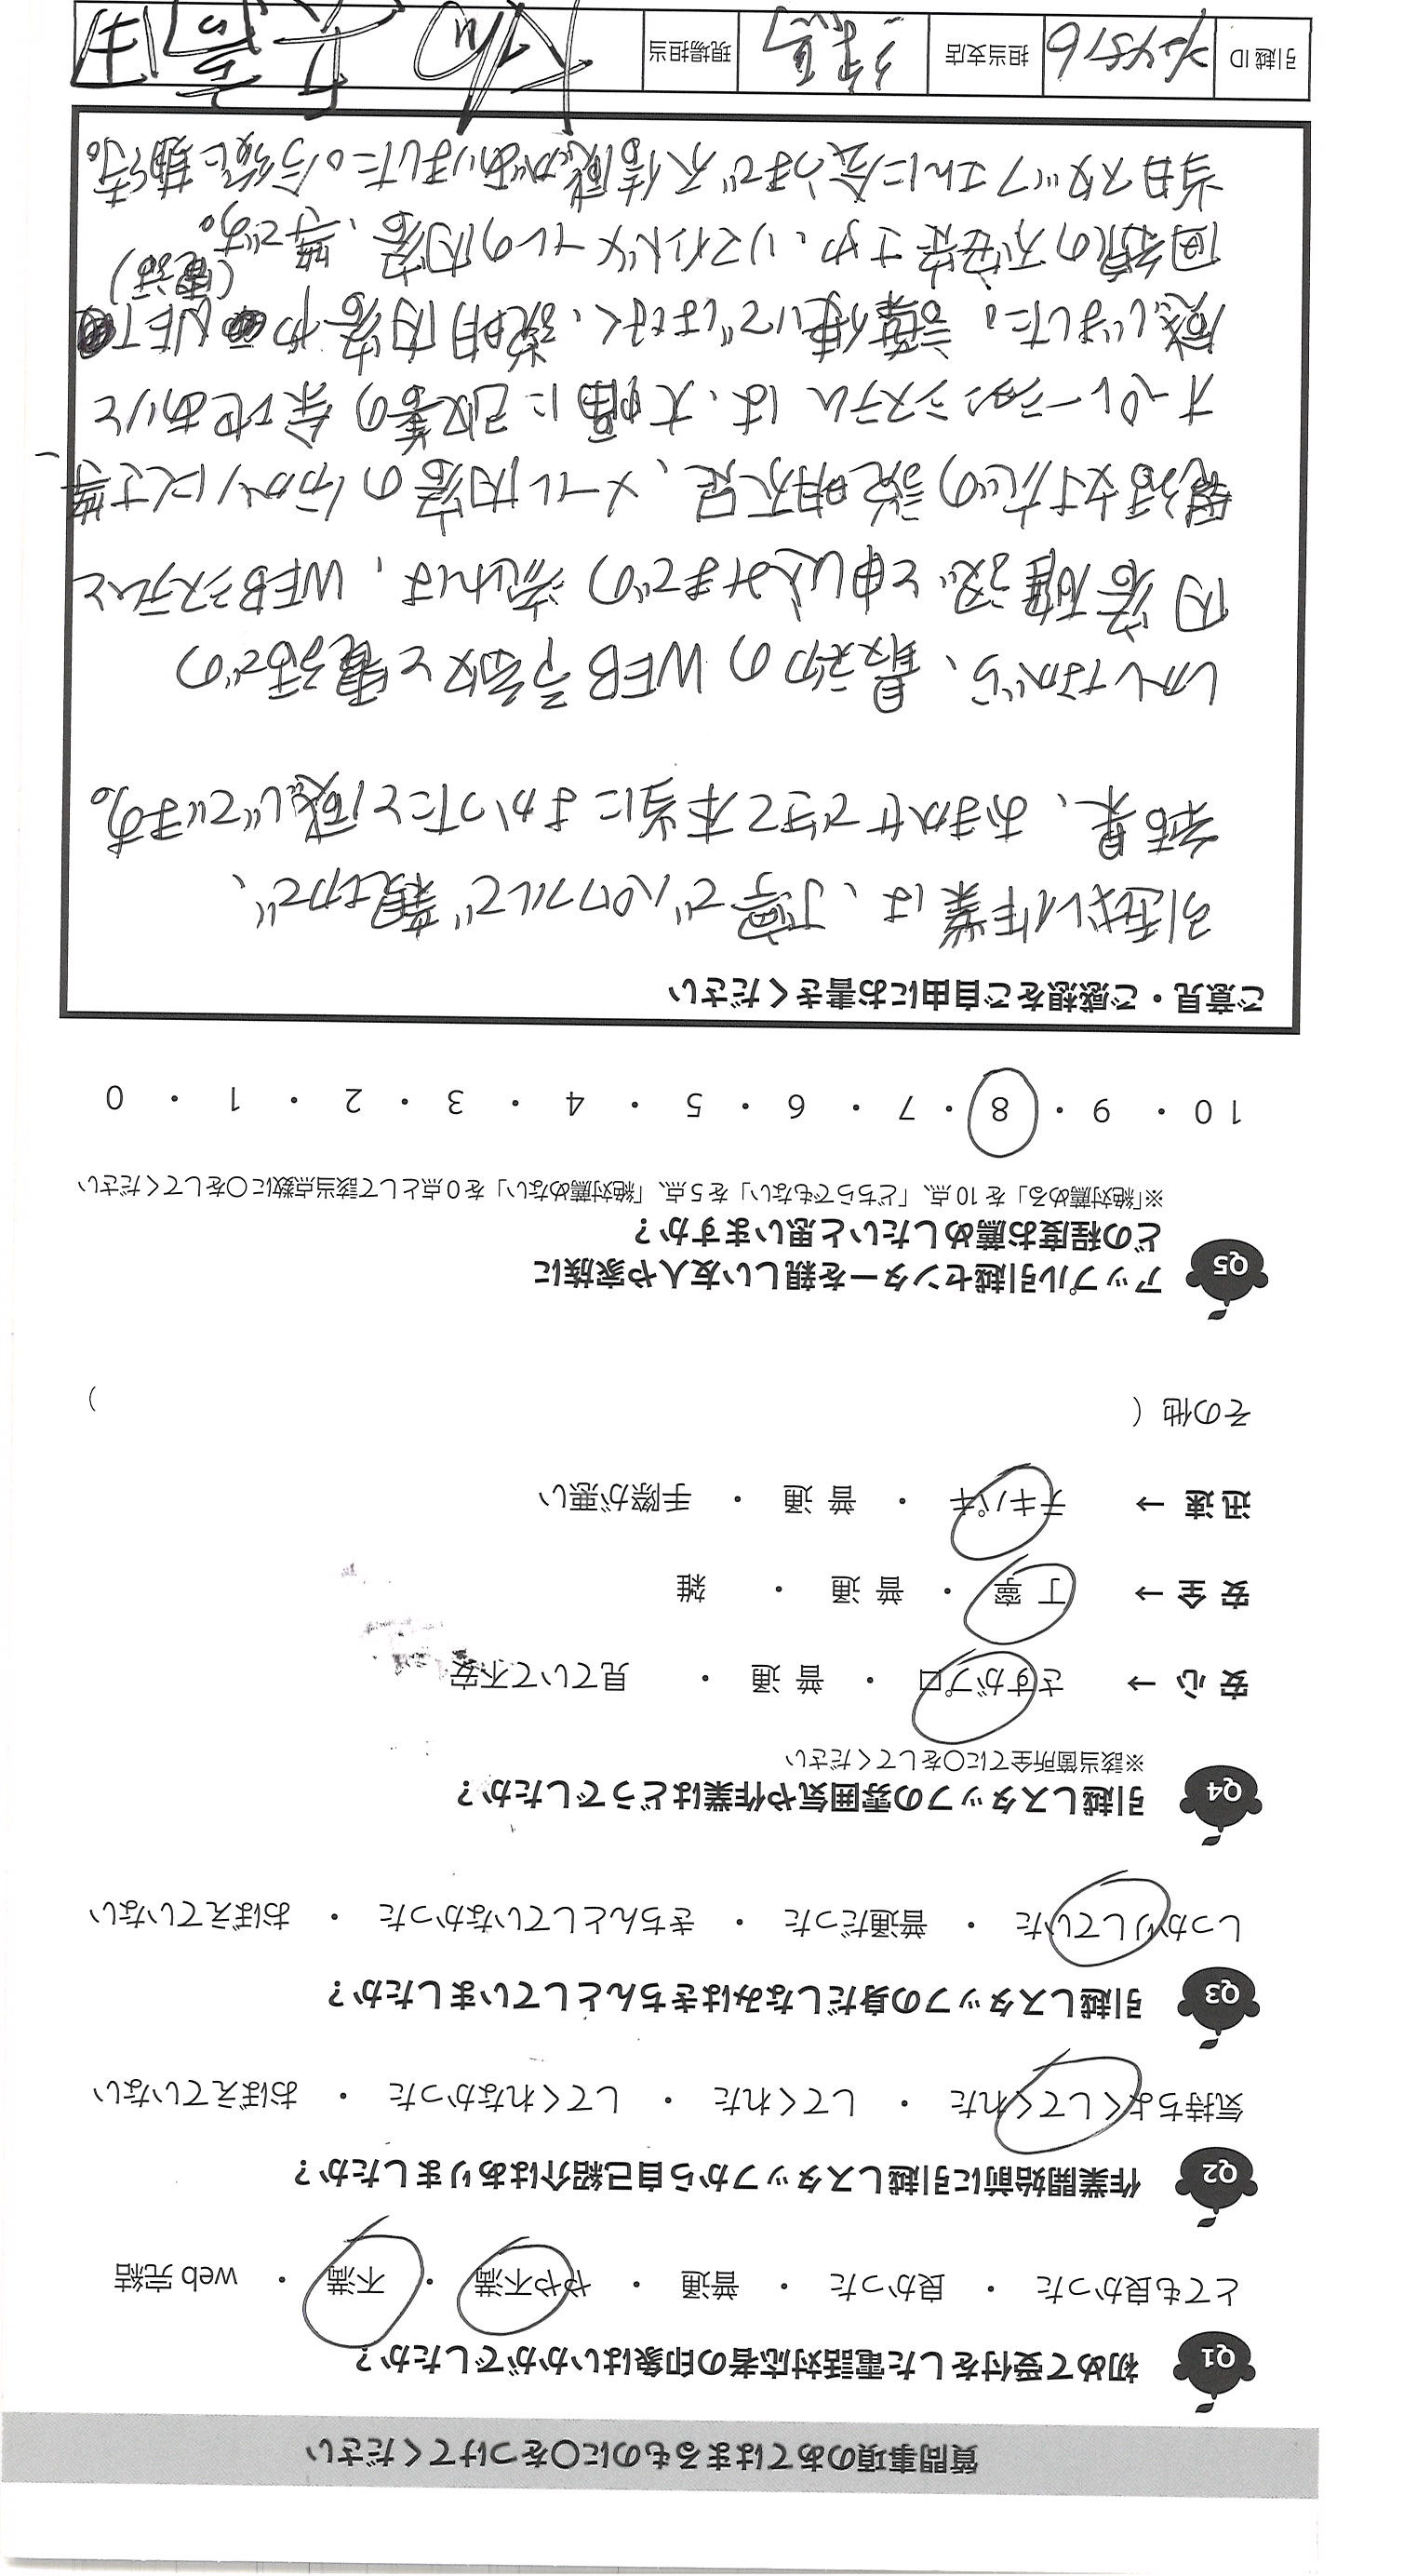 質問事項のあてはまるものに〇をつけてください
Q1 初めて受付をした電話対応者の印象はいかがでしたか？
とても良かった ・ 良かった ・ 普通 ・ やや不満 ・ 不満 ・ web 完結
Q2 作業開始前に引越しスタッフから自己紹介はありましたか？
気持ちよくしてくれた ・ してくれた ・ してくれなかった ・ おぼえていない
Q3 引越しスタッフの身だしなみはきちんとしていましたか？
しっかりしていた ・ 普通だった ・ きちんとしていなかった ・ おぼえていない
Q4 引越しスタッフの雰囲気や作業はどうでしたか？
※該当箇所全てに〇をしてください
安 心 → さすがプロ ・ 普 通 ・ 見ていて不安
安 全 → 丁 寧 ・ 普 通 ・ 雑
迅 速 → テキパキ ・ 普 通 ・ 手際が悪い
その他（ ）
Q5 アップル引越センターを親しい友人や家族に
どの程度お薦めしたいと思いますか？
※「絶対薦める」を 10 点、「どちらでもない」を 5 点、「絶対薦めない」を 0 点として該当点数に〇をしてください
10 ・ 9 ・ 8 ・ 7 ・ 6 ・ 5 ・ 4 ・ 3 ・ 2 ・ 1 ・ 0
ご意見・ご感想をご自由にお書きください
引越し作業は、丁寧でパワフルで親切で、
結果、おまかせできて本当によかったと感じています。
しかしながら、最初のWEB予約と電話での
内容確認と申し込みまでの流れは、WEBシステムと
電話対応の説明不足、メール内容の分かりにくさ等、
オペレーションシステムは、大幅に改善の余地ありと
感じました。言葉使いではなく、説明内容や NET
(電話)
回線の不安定さや、リマインドメールの内容、等です。
当日スタッフさんに会うまで不信感がありました。今後に期待。
引越 ID 担当支店 現場担当